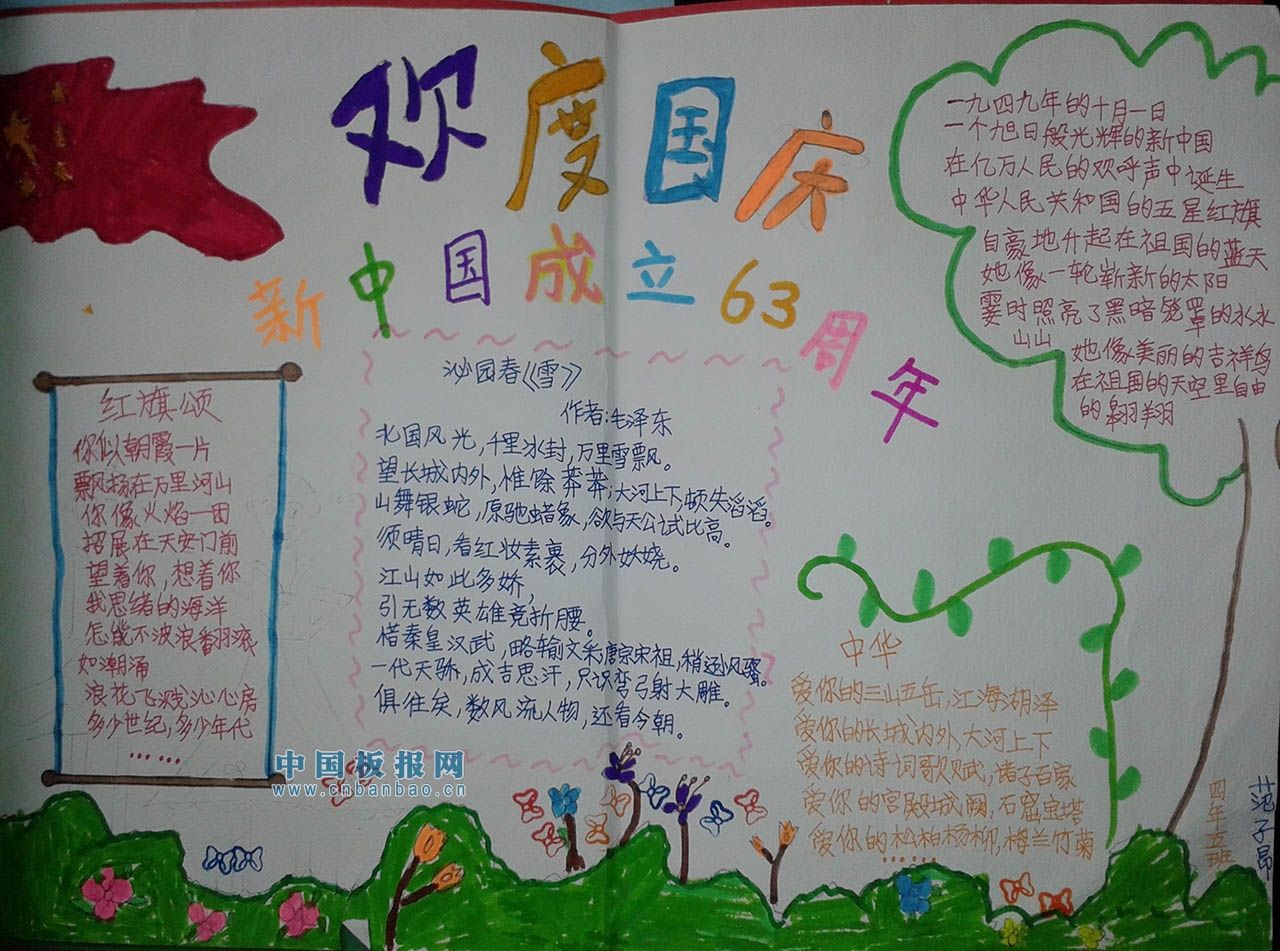 欢度国庆
新中国成立63周年
红旗颂
你似朝霞一片
飘扬在万里河山
你像火焰一团
招展在天安门前
望着你，想着你
我思绪的海洋
怎能不波浪翻滚
如潮涌
浪花飞溅沁心房
多少世纪，多少年代
……
沁园春《雪》
作者：毛泽东
北国风光，千里冰封，万里雪飘。
望长城内外，惟馀莽莽；大河上下，顿失滔滔。
山舞银蛇，原驰蜡象，欲与天公试比高。
须晴日，看红妆素裹，分外妖娆。
江山如此多娇，
引无数英雄竞折腰。
惜秦皇汉武，略输文采，唐宗宋祖，稍逊风骚。
一代天骄，成吉思汗，只识弯弓射大雕。
俱往矣，数风流人物，还看今朝。
一九四九年的十月一日
一个旭日般光辉的新中国
在亿万人民的欢呼声中诞生
中华人民共和国的五星红旗
自豪地升起在祖国的蓝天
她像一轮崭新的太阳
霎时照亮了黑暗笼罩的水水
山山
她像美丽的吉祥鸟
在祖国的天空里自由
的翱翔
中华
爱你的三山五岳，江海湖泽
爱你的长城内外，大河上下
爱你的诗词歌赋，诸子百家
爱你的宫殿城阙，石窟宝塔
爱你的松柏杨柳，梅兰竹菊
……
四年五班
范子昂
中国板报网
www.cnbanbao.cn